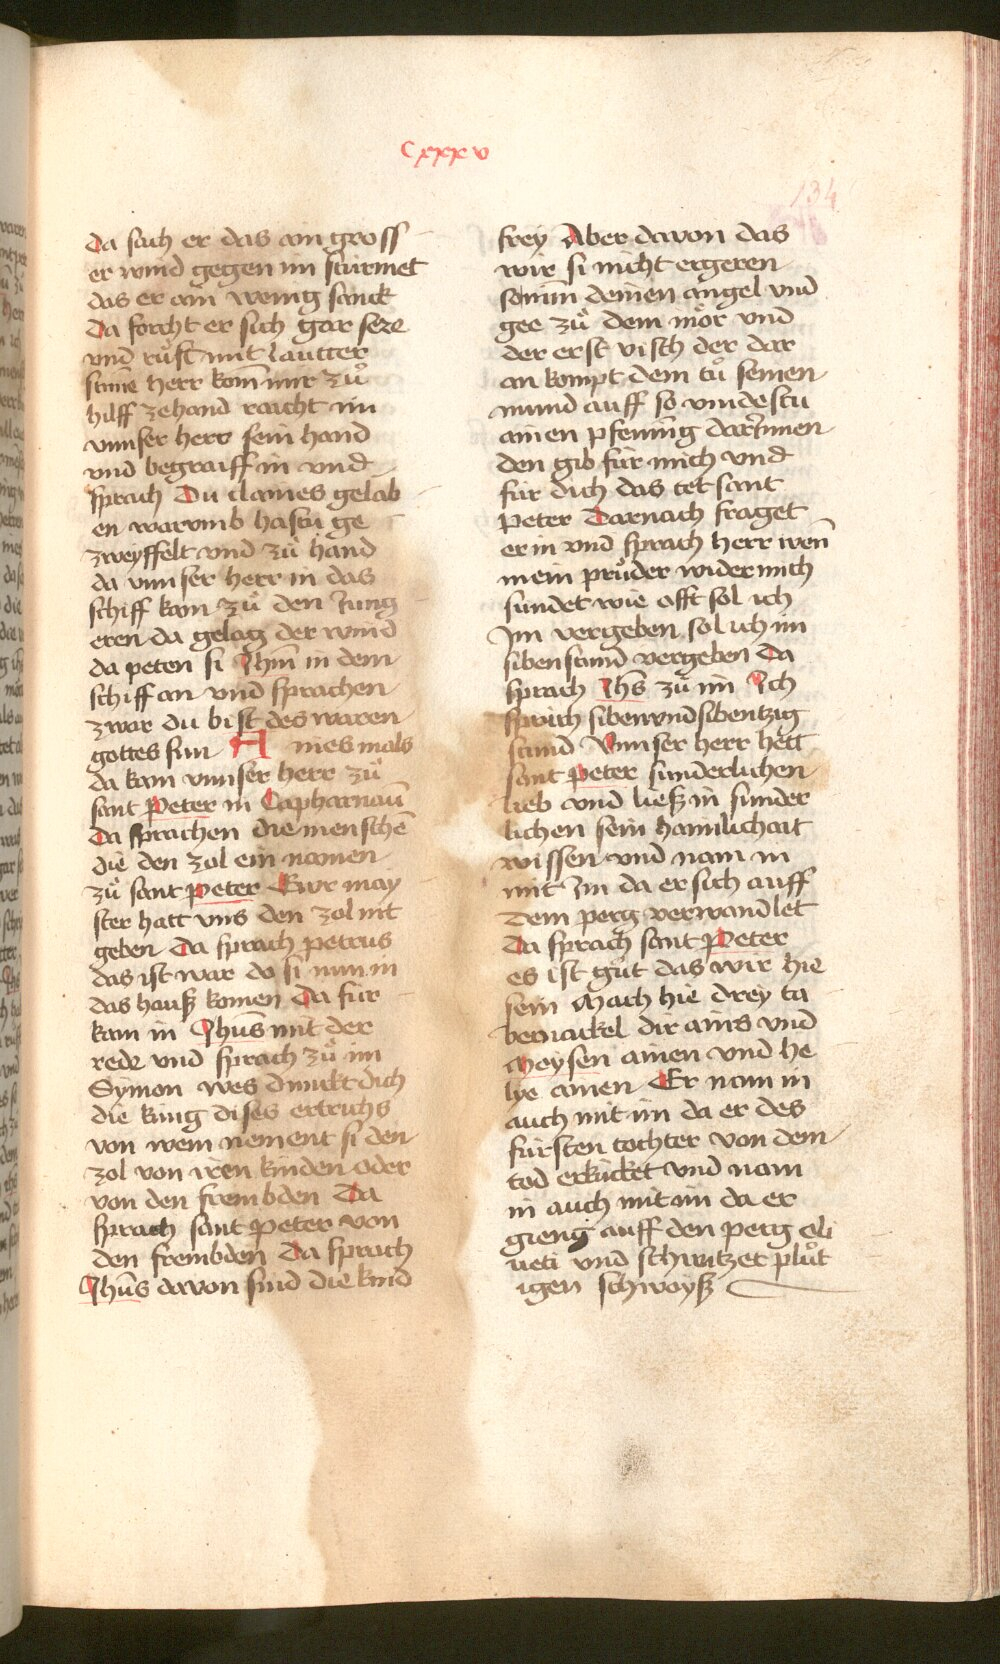 Cxxxv
134
da sach er das ain gross
er wind gegen im sturmet
das er ain wenig sanck
Da forcht er sich gar sere
vnd růft mit lautter
stime herr kom mir zů
hilff zehand raicht im
vnnser herr sein hand
vnd begraiff in vnd
sprach Du claines gelab
en warumb hastu ge
zweyffelt vnd zů hand
da vnnser herr in das
schiff kam zů den Jung
eren da gelag der wind
da peten si Jhm̄ in dem
schiff an vnd sprachen
zwar du bist des waren
gottes sun A ines mals
da kam vnnser herr zů
sant Peter in Capharnaū
Da sprachen die menschē
die den zol ein namen
zů sant Peter Ewr may
ster hatt vns den zol nit
geben Da sprach petrus
das ist war do si nun in
das hauß komen Da für
kam in Jhūs mit der
rede vnd sprach zů im
Symon wes dunckt dich
die küng dises ertrichs
von wem nement si den
zol von iren kinden oder
von den frembden Da
sprach sant Peter von
den frembden Da sprach
Jhūs davon sind die kind
frey Aber davon das
wir si nicht ergeren
so nim deinen angel vnd
gee zů dem mör vnd
der erst visch der dar
an kompt dem tů seinen
mund auff so vindestu
ainen pfening darJnnen
den gib für mich vnd
für dich das tet sant
Peter Darnach fraget
er in vnd sprach herr wen̄
mein průder wider mich
sündet wie offt sol ich
Jm vergeben sol ich im
siben stund vergeben Da
sprach Jhs̄ zů im Jch
sprich sibenvndsibentzig
stund Vnnser herr hett
sant Peter sunderlichen
lieb vnd ließ in sunder
lichen sein haimlichait
wissen vnd nam in
mit Jm da er sich auff
dem perg verwandlet
Da sprach sant Peter
es ist gůt das wir hie
sein Mach hie drey ta
bernackel dir ains vnd
Moysen ainen vnd he
lye ainen Er nam in
auch mit im da er des
fürsten tochter von dem
tod erkücket vnd nam
in auch mit im da er
gieng auff den perg oli
ueti vnd schwitzet plůt
igen schwayß